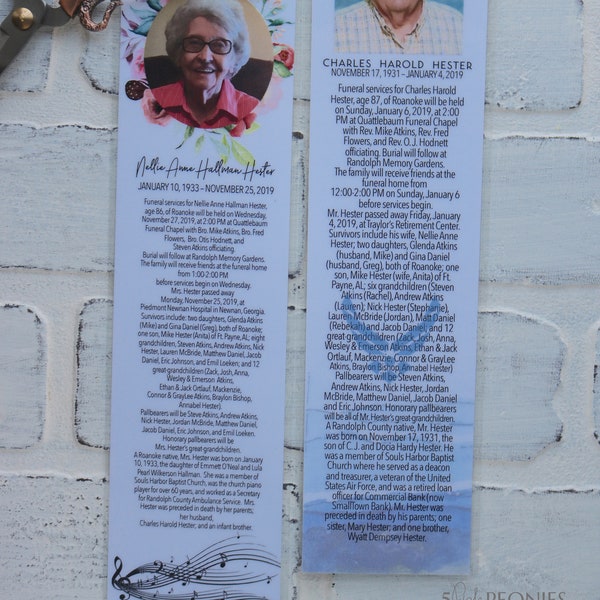 Nellie Anne Hallman Hester
JANUARY 10, 1933 – NOVEMBER 25, 2019
Funeral services for Nellie Anne Hallman Hester,
age 86, of Roanoke will be held on Wednesday,
November 27, 2019, at 2:00 PM at Quattlebaum
Funeral Chapel with Bro. Mike Atkins, Bro. Fred
Flowers, Bro. Otis Hodnett, and
Steven Atkins officiating.
Burial will follow at Randolph Memory Gardens.
The family will receive friends at the funeral home
from 1:00-2:00 PM
before services begin on Wednesday.
Mrs. Hester passed away
Monday, November 25, 2019, at
Piedmont Newnan Hospital in Newnan, Georgia.
Survivors include: two daughters, Glenda Atkins
(Mike) and Gina Daniel (Greg), both of Roanoke;
one son, Mike Hester (Anita) of Ft. Payne, AL; eight
grandchildren, Steven Atkins, Andrew Atkins, Nick
Hester, Lauren McBride, Matthew Daniel, Jacob
Daniel, Eric Johnson, and Emil Loeken; and 12
great-grandchildren (Zack, Josh, Anna,
Wesley & Emerson Atkins,
Ethan & Jack Ortlauf, Mackenzie,
Connor & GrayLee Atkins, Braylon Bishop,
Annabel Hester).
Pallbearers will be Steve Atkins, Andrew Atkins,
Nick Hester, Jordan McBride, Matthew Daniel,
Jacob Daniel, Eric Johnson, and Emil Loeken.
Honorary pallbearers will be
Mrs. Hester's great-grandchildren.
A Roanoke native, Mrs. Hester was born on January
10, 1933, the daughter of Emmett O'Neal and Lula
Pearl Wilkerson Hallman. She was a member of
Souls Harbor Baptist Church, was the church piano
player for over 60 years, and worked as a Secretary
for Randolph County Ambulance Service. Mrs.
Hester was preceded in death by her parents,
her husband,
Charles Harold Hester; and an infant brother.
CHARLES HAROLD HESTER
NOVEMBER 17, 1931 – JANUARY 4, 2019
Funeral services for Charles Harold
Hester, age 87, of Roanoke will be held
on Sunday, January 6, 2019, at 2:00
PM at Quattlebaum Funeral Chapel
with Rev. Mike Atkins, Rev. Fred
Flowers, and Rev. O. J. Hodnett
officiating. Burial will follow at
Randolph Memory Gardens.
The family will receive friends at the
funeral home from
12:00-2:00 PM on Sunday, January 6
before services begin.
Mr. Hester passed away Friday, January
4, 2019, at Traylor's Retirement Center.
Survivors include his wife, Nellie Anne
Hester; two daughters, Glenda Atkins
(husband, Mike) and Gina Daniel
(husband, Greg), both of Roanoke; one
son, Mike Hester (wife, Anita) of Ft.
Payne, AL; six grandchildren (Steven
Atkins (Rachel), Andrew Atkins
(Lauren), Nick Hester (Stephanie),
Lauren McBride (Jordan), Matt Daniel
(Rebekah) and Jacob Daniel; and 12
great-grandchildren (Zack, Josh, Anna,
Wesley & Emerson Atkins, Ethan & Jack
Ortlauf, Mackenzie, Connor & GrayLee
Atkins, Braylon Bishop, Annabel Hester)
Pallbearers will be Steven Atkins,
Andrew Atkins, Nick Hester, Jordan
McBride, Matthew Daniel, Jacob Daniel
and Eric Johnson. Honorary pallbearers
will be all of Mr. Hester's great-grandchildren.
A Randolph County native, Mr. Hester
was born on November 17, 1931, the
son of C. J. and Docia Hardy Hester. He
was a member of Souls Harbor Baptist
Church where he served as a deacon
and treasurer, a veteran of the United
States Air Force, and was a retired loan
officer for Commercial Bank (now
SmallTown Bank). Mr. Hester was
preceded in death by his parents; one
sister, Mary Hester; and one brother,
Wyatt Dempsey Hester.
PEONIES